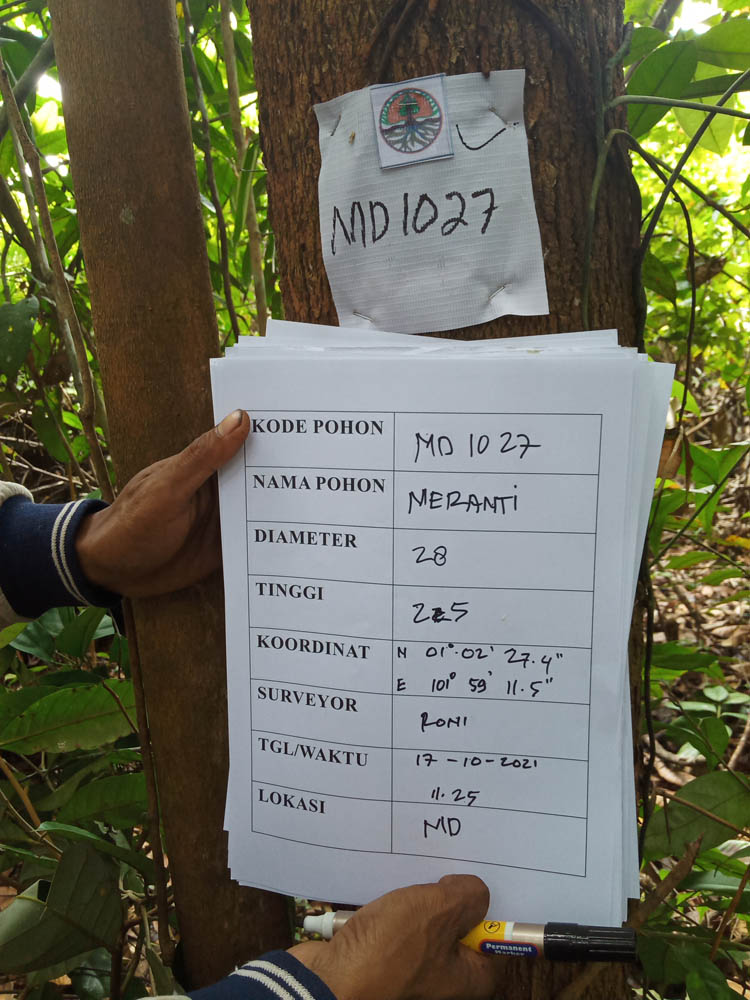 MD1027
KODE POHON MD 1027
NAMA POHON MERANTI
DIAMETER 28
TINGGI
KOORDINAT N 01°.02' 27.4"
E 101° 59' 11.5"
SURVEYOR RONI
TGL/WAKTU 17-10-2021
11.25
LOKASI MD
PERMANENT
MARKER